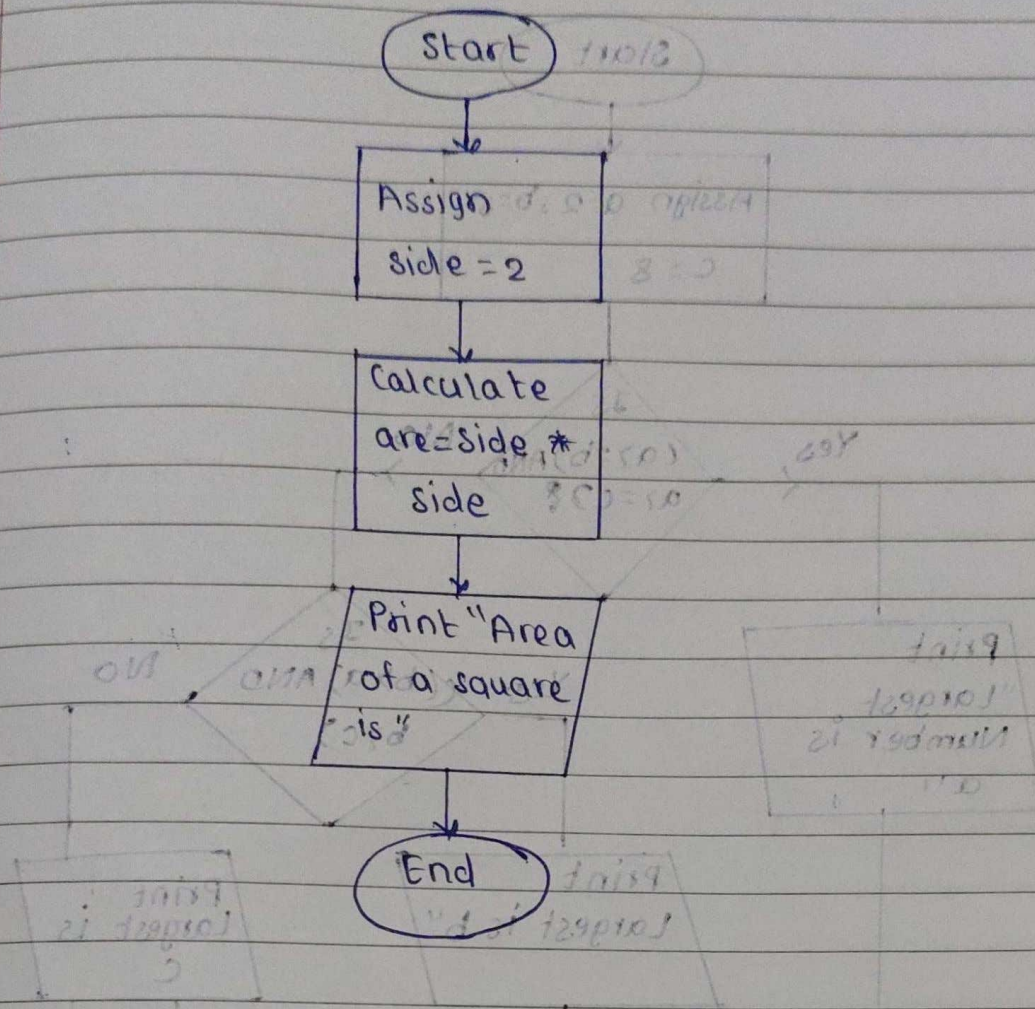 Start
Assign
side = 2
Calculate
are=side *
side
Print "Area
of a square
is"
End